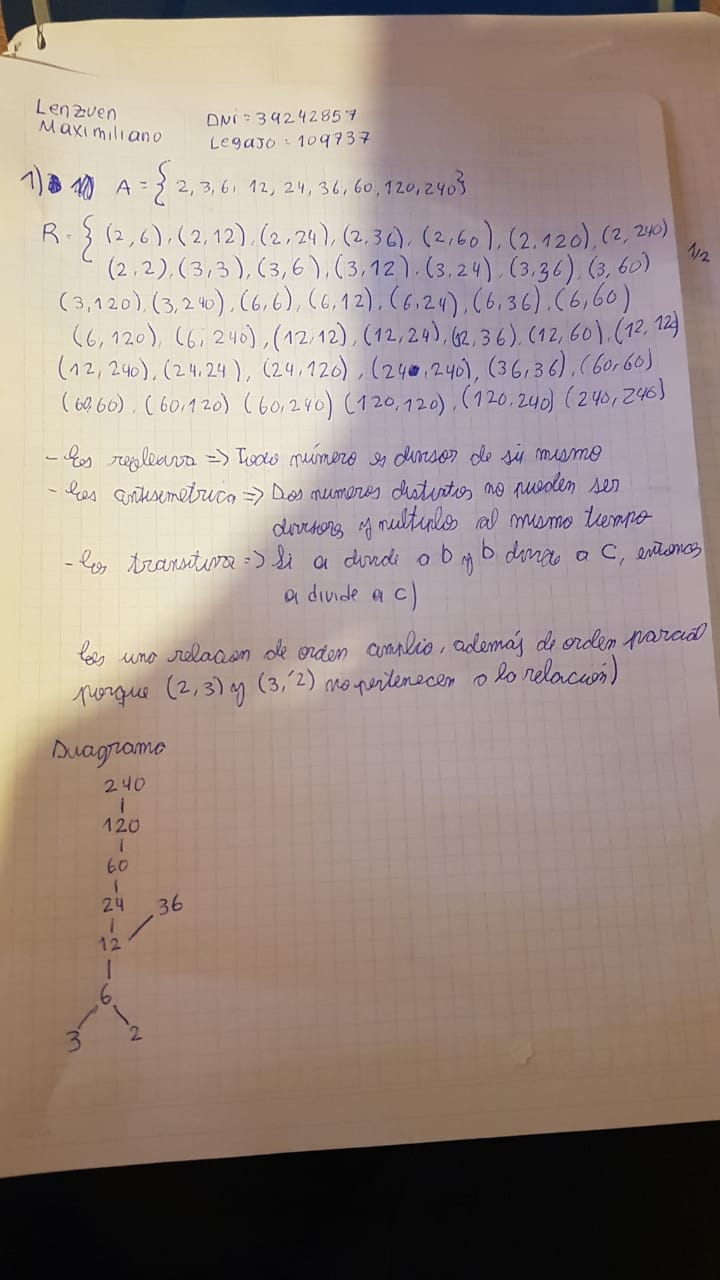 Lenzuen
Maximiliano
DNI = 39242857
Legajo = 109737
1) A = { 2, 3, 6, 12, 24, 36, 60, 120, 240}
R = { (2,6), (2,12), (2,24), (2,36), (2,60), (2,120), (2,240)
1/2
(2,2), (3,3), (3,6), (3,12), (3,24), (3,36), (3,60)
(3,120), (3,240), (6,6), (6,12), (6,24), (6,36), (6,60)
(6,120), (6,240), (12,12), (12,24), (12,36), (12,60), (12,12)
(12,240), (24,24), (24,120), (24,240), (36,36), (60,60)
(60,60), (60,120) (60,240) (120,120), (120,240) (240,240)
- Es reflexiva => Todo número es divisor de si mismo
- Es antisimetrica => Dos numeros distintos no pueden ser
divisores y multiplos al mismo tiempo
- Es transitiva => Si a divide a b y b divide a c, entonces
a divide a c)
Es una relacion de orden amplio, además de orden parcial
porque (2,3) y (3,2) no pertenecen a la relación)
Diagrama
240
120
60
24 36
12
6
3 2